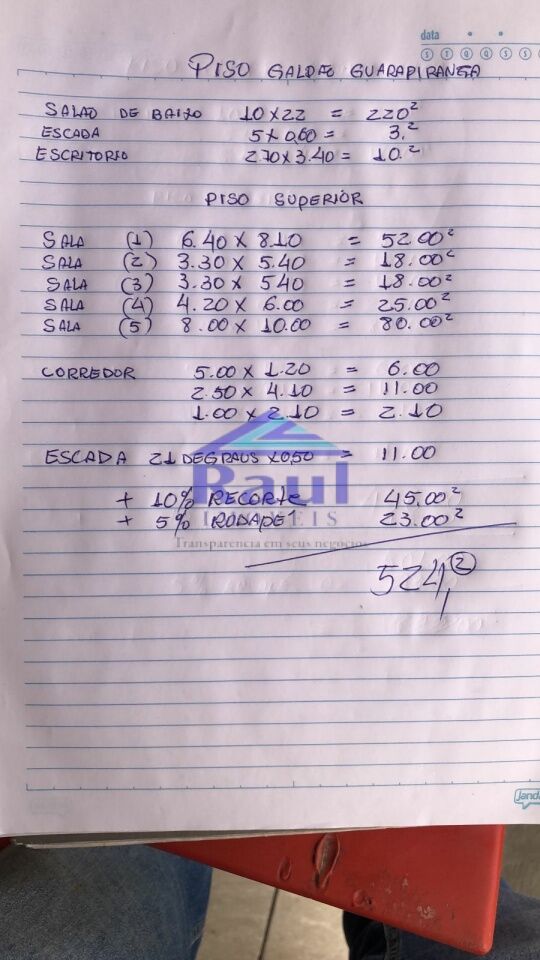 data
S T Q Q S S
PISO GALDÃO GUARAPIRANGA
SALÃO DE BAIXO 10 x 22 = 220²
ESCADA 5 x 0,60 = 3.²
ESCRITORIO 2.70 x 3.40 = 10.²
PISO SUPERIOR
SALA (1) 6.40 x 8.10 = 52.00²
SALA (2) 3.30 x 5.40 = 18.00²
SALA (3) 3.30 x 5.40 = 18.00²
SALA (4) 4.20 x 6.00 = 25.00²
SALA (5) 8.00 x 10.00 = 80.00²
CORREDOR 5.00 x 1.20 = 6.00
2.50 x 4.10 = 11.00
1.00 x 2.10 = 2.10
ESCADA 21 DEGRAUS x 0,50 = 11.00
+ 10% RECORTE 45.00²
+ 5% RODAPÉ 23.00²
524,②
Raul
IMÓVEIS
Transparencia em seus negocios